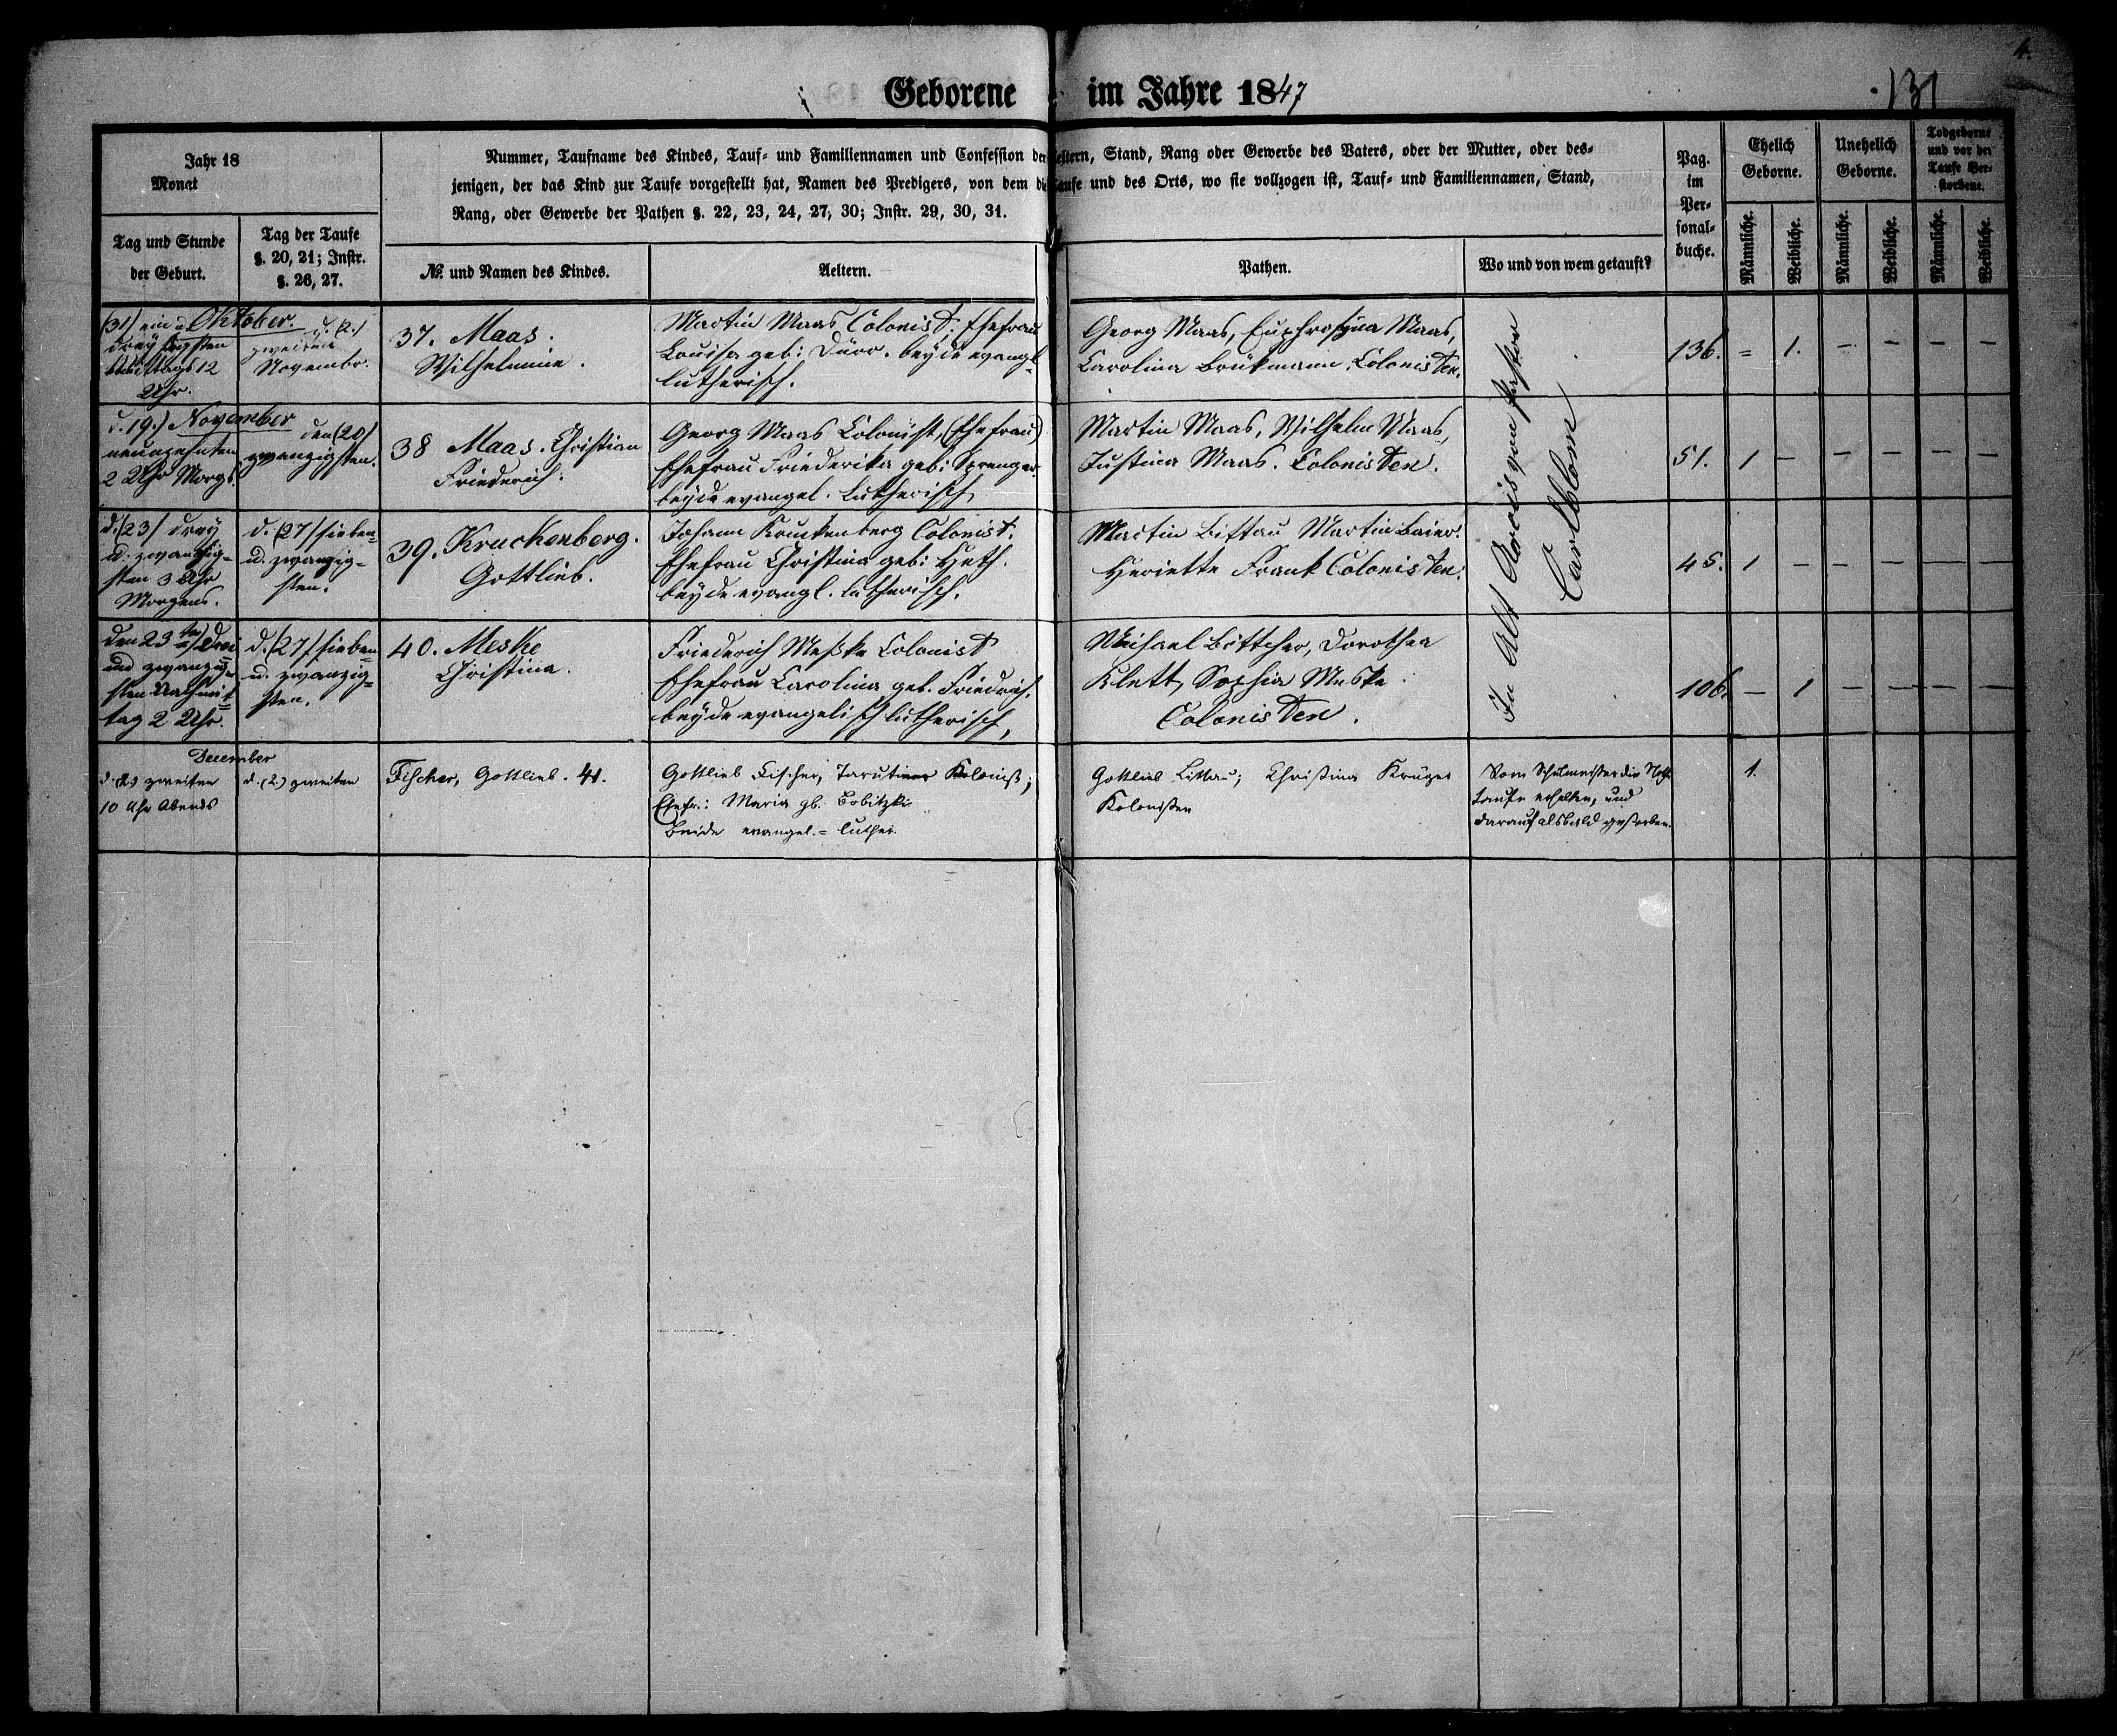 4.
131
Geborene im Jahre 1847
Jahr 18
Monat
Nummer, Taufname des Kindes, Tauf- und Familiennamen und Confession der Aeltern, Stand, Rang oder Gewerbe des Vaters, oder der Mutter, oder des-
jenigen, der das Kind zur Taufe vorgestellt hat, Namen des Predigers, von dem die Taufe und des Orts, wo sie vollzogen ist, Tauf- und Familiennamen, Stand,
Rang, oder Gewerbe der Pathen §. 22, 23, 24, 27, 30; Instr. 29, 30, 31.
Pag.
im
Per-
sonal-
buche.
Ehelich
Geborne.
Unehelich
Geborne.
Todgeborne
und vor der
Taufe Ver-
storbene.
Tag und Stunde
der Geburt.
Tag der Taufe
§. 20, 21; Instr.
§. 26, 27.
№. und Namen des Kindes.
Aeltern.
Pathen.
Wo und von wem getauft?
Männliche.
Weibliche.
Männliche.
Weibliche.
Männliche.
Weibliche.
(31) ein u. Oktober.
dreyßigsten
Mittags 12
Uhr.
d. (2.)
zweiten
Novembr.
37. Maas.
Wilhelmine.
Martin Maas Colonist. Ehefrau
Louisa geb: Dürr. beyde evangl-
lutherisch.
Georg Maas, Euphrosyna Maas,
Carolina Brükmann, Colonisten.
In Alt Arcis vom Pastor
Carlblom
136. = 1. — — — —
d. 19.) November
neunzehnten
2 Uhr Morgs.
den (20)
zwanzigsten.
38 Maas. Christian
Friederich.
Georg Maas Colonist, (Ehefrau)
Ehefrau Friederika geb: Sprenger
beyde evangel. lutherisch
Martin Maas, Wilhelm Maas,
Justina Maas. Colonisten.
51. 1 — — — — —
d. (23) drey
u. zwanzig-
sten 3 Uhr
Morgens.
d. (27) sieben-
u. zwanzig-
sten.
39. Kruckenberg.
Gottlieb.
Johann Kruckenberg Colonist.
Ehefrau Christina geb: Heth.
beyde evangl. lutherisch.
Martin Littau Martin Baier.
Heriette Frank Colonisten.
45. 1 — — — — —
den 23ten) Drei
und zwanzig-
sten Nachmit-
tag 2 Uhr.
d. (27) sieben
u. zwanzig-
sten.
40. Meske
Christina.
Friederich Meske Colonist
Ehefrau Carolina geb. Friedrich.
beyde evangelisch lutherisch,
Michael Böttcher, Dorothea
Klett, Sophia Meske
Colonisten.
106. — 1 — — — —
December
d. (2.) zweiten
10 Uhr Abends
d. (2.) zweiten
Fischer, Gottlieb. 41.
Gottlieb Fischer, Tarutiner Kolonist;
Ehefr.: Maria gb. Bobitzki
Beide evangel.-luther.
Gottlieb Littau; Christina Krüger
Kolonisten
Vom Schulmeister die Noth-
taufe erhalten, und
darauf alsbald gestorben.
1.